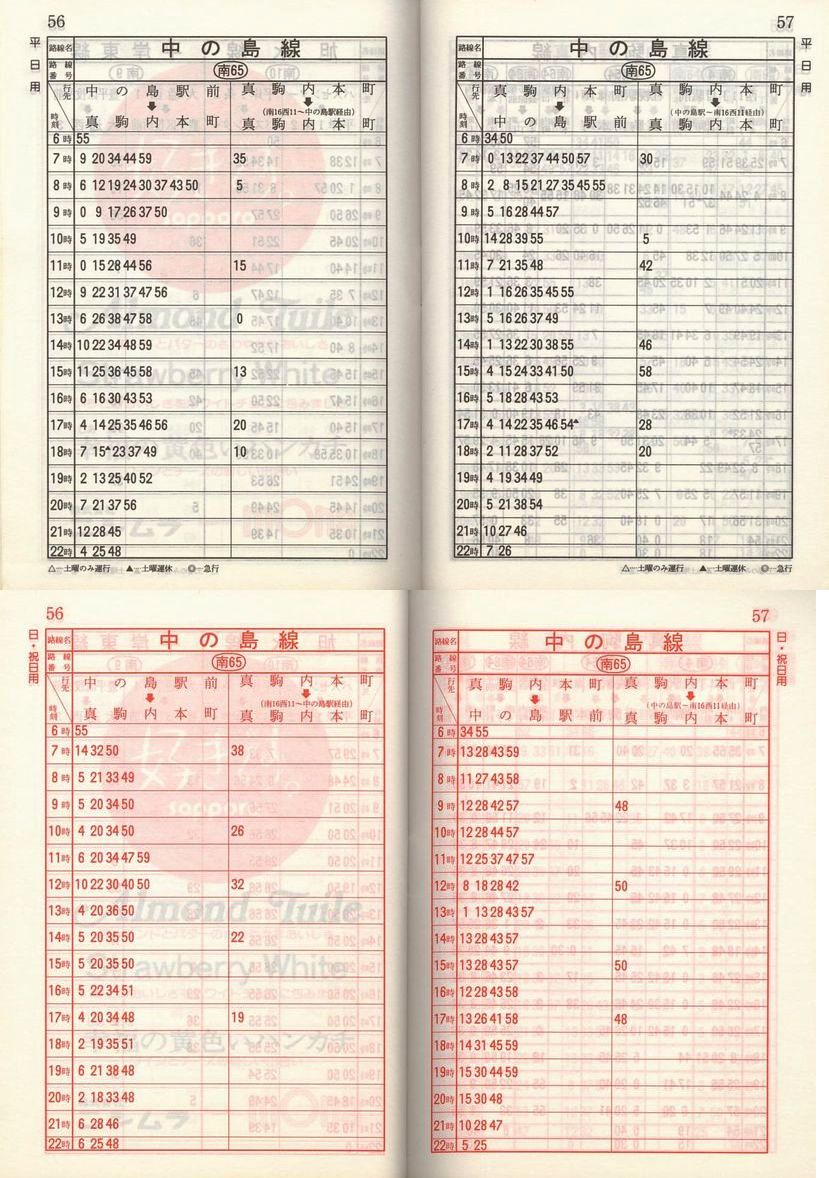 56
平日用
路線名 中の島線
路線番号 南65
行先 時刻 中の島駅前 ↓ 真駒内本町 真駒内本町 ↓ (南16西11～中の島駅経由) 真駒内本町
6時 55
7時 9 20 34 44 59 35
8時 6 12 19 24 30 37 43 50 5
9時 0 9 17 26 37 50
10時 5 19 35 49
11時 0 15 28 44 56 15
12時 9 22 31 37 47 56
13時 6 26 38 47 58 0
14時 10 22 34 48 59
15時 11 25 36 45 58 13
16時 6 16 30 43 53
17時 4 14 25 35 46 56 20
18時 7 15▲ 23 37 49 10
19時 2 13 25 40 52
20時 7 21 37 56
21時 12 28 45
22時 4 25 48
△…土曜のみ運行 ▲…土曜運休 ◎…急行
57
平日用
路線名 中の島線
路線番号 南65
行先 時刻 真駒内本町 ↓ 中の島駅前 真駒内本町 ↓ (中の島駅～南16西11経由) 真駒内本町
6時 34 50
7時 0 13 22 37 44 50 57 30
8時 2 8 15 21 27 35 45 55
9時 5 16 28 44 57
10時 14 28 39 55 5
11時 7 21 35 48 42
12時 1 16 26 35 45 55
13時 5 16 26 37 49
14時 1 13 22 30 38 55 46
15時 4 15 24 33 41 50 58
16時 5 18 28 43 53
17時 4 14 22 35 46 54▲ 28
18時 2 11 28 37 52 20
19時 4 19 34 49
20時 5 21 38 54
21時 10 27 46
22時 7 26
△…土曜のみ運行 ▲…土曜運休 ◎…急行
56
日・祝日用
路線名 中の島線
路線番号 南65
行先 時刻 中の島駅前 ↓ 真駒内本町 真駒内本町 ↓ (南16西11～中の島駅経由) 真駒内本町
6時 55
7時 14 32 50 38
8時 5 21 33 49
9時 5 20 34 50
10時 4 20 34 50 26
11時 6 20 34 47 59
12時 10 22 30 40 50 32
13時 4 20 36 50
14時 5 20 35 50 22
15時 5 20 35 50
16時 5 22 34 51
17時 4 20 34 48 19
18時 2 19 35 51
19時 6 21 38 48
20時 2 18 33 48
21時 6 28 46
22時 6 25 48
57
日・祝日用
路線名 中の島線
路線番号 南65
行先 時刻 真駒内本町 ↓ 中の島駅前 真駒内本町 ↓ (中の島駅～南16西11経由) 真駒内本町
6時 34 55
7時 13 28 43 59
8時 11 27 43 58
9時 12 28 42 57 48
10時 12 28 44 57
11時 12 25 37 47 57
12時 8 18 28 42 50
13時 1 13 28 43 57
14時 13 28 43 57
15時 13 28 43 57 50
16時 12 28 43 58
17時 13 26 41 58 48
18時 14 31 45 59
19時 15 30 44 59
20時 15 30 48
21時 10 28 47
22時 5 25